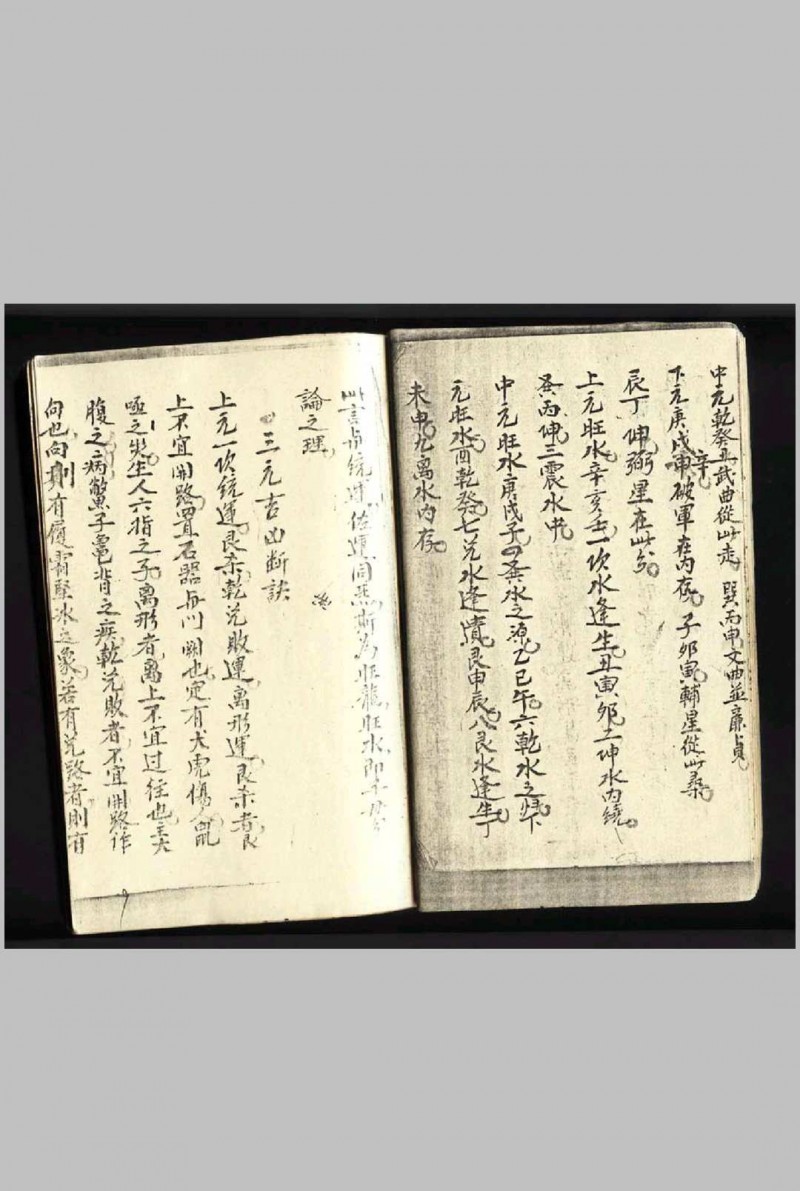 中元乾癸丑武曲從此走 巽丙申文曲並廉貞
下元庚戌辛破軍在内存 子卯寅輔星從此尋
辰丁坤弼星在此分
上元旺水辛亥壬一坎水逢生丑寅卯二坤水内繞
丙坤三震水中
中元旺水庚戌子四巽水之源乙巳午六乾水之下
元旺水酉乾癸七兌水逢 艮申辰八艮水逢生丁
未申九离水内存
此言 統運 同 斷為旺龍旺水即
論之理
三元吉凶断訣
上元一坎統運艮杀乾兌敗運离形運艮杀者艮
上不宜開路置石器与门開也定有犬虎傷人
哑之災生人六指之子离形者离上不宜过往也主大
腹之病鱉子龜背之疾乾兌敗者不宜開路作
向也向則有履霜堅冰之象若有兌路者則有